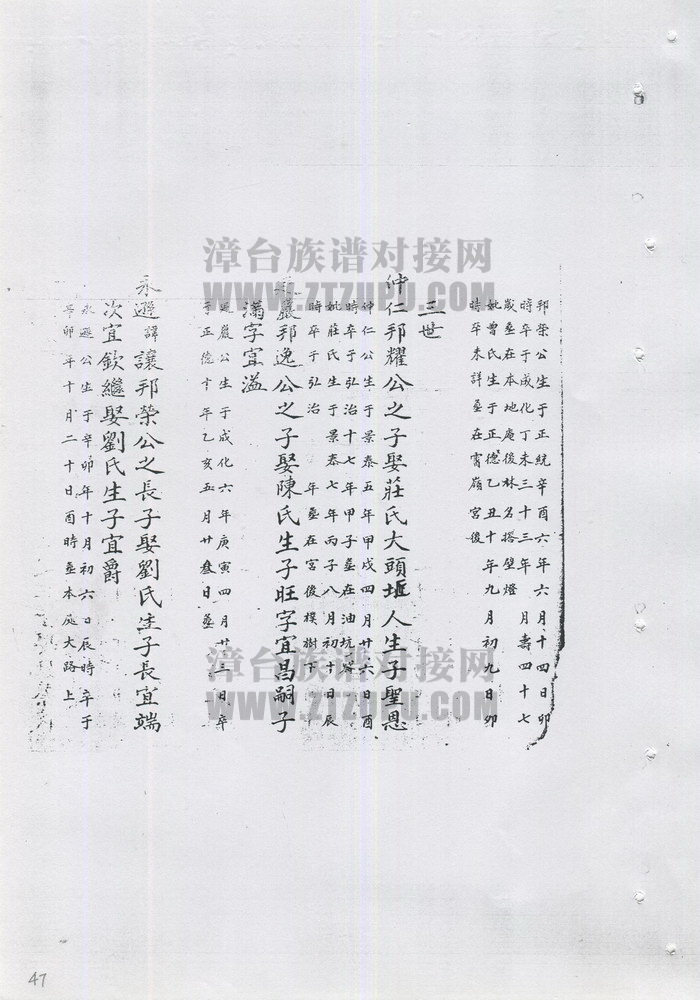 邦榮公生于正統辛酉六年六月十四日卯
時卒于成化丁未三十三年 月壽四十七
歲墓在本地庵後林名搭壁燈
妣曹氏生于正德乙丑十年九月初九日卯
時卒未詳墓在霄嶺宮後
三世
仲仁邦耀公之子娶莊氏大頭坵人生子聖恩
仲仁公生于景泰五年甲戌四月廿六日酉
時卒于弘治十七年甲子墓在油坑
妣莊氏生于景泰七年丙子八月初十日辰
時卒于弘治 年墓在宮後樸樹下
嚴邦逸公之子娶陳氏生子旺字宜昌嗣子
滿字宜溢
廷嚴公生于成化六年庚寅四月廿三日卒
于正德十年乙亥五月廿叁日墓
永遜諱讓邦榮公之長子娶劉氏生子長宜端
次宜欽繼娶劉氏生子宜爵
永遜公生于辛卯年十月初六日辰時卒于
辛卯年十月二十日酉時墓本庭大路上
漳台族谱对接网
WWW.ZTZUPU.COM
漳台族谱对接网
WWW.ZTZUPU.COM
47